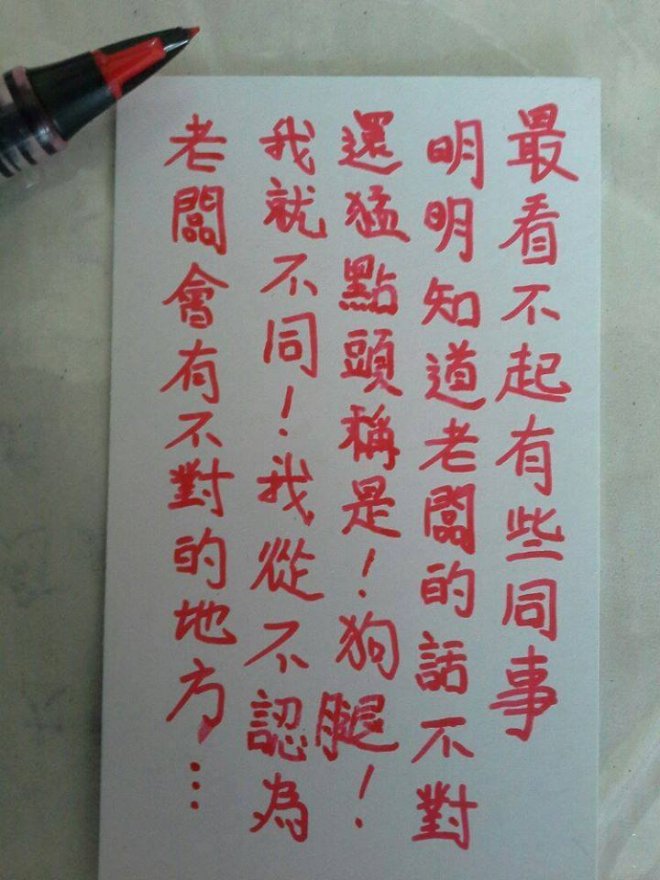 最看不起有些同事
明明知道老闆的話不對
還猛點頭稱是！狗腿！
我就不同！我從不認為
老闆會有不對的地方…